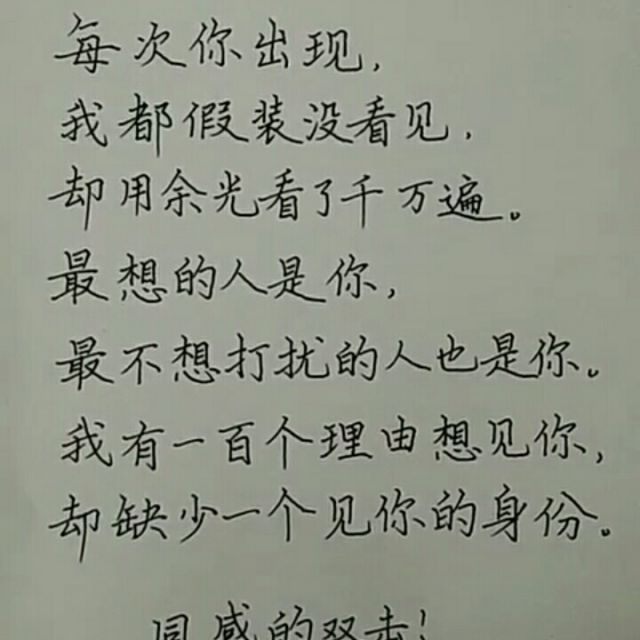 每次你出现,
我都假装没看见,
却用余光看了千万遍。
最想的人是你,
最不想打扰的人也是你。
我有一百个理由想见你,
却缺少一个见你的身份。
同感的双击!